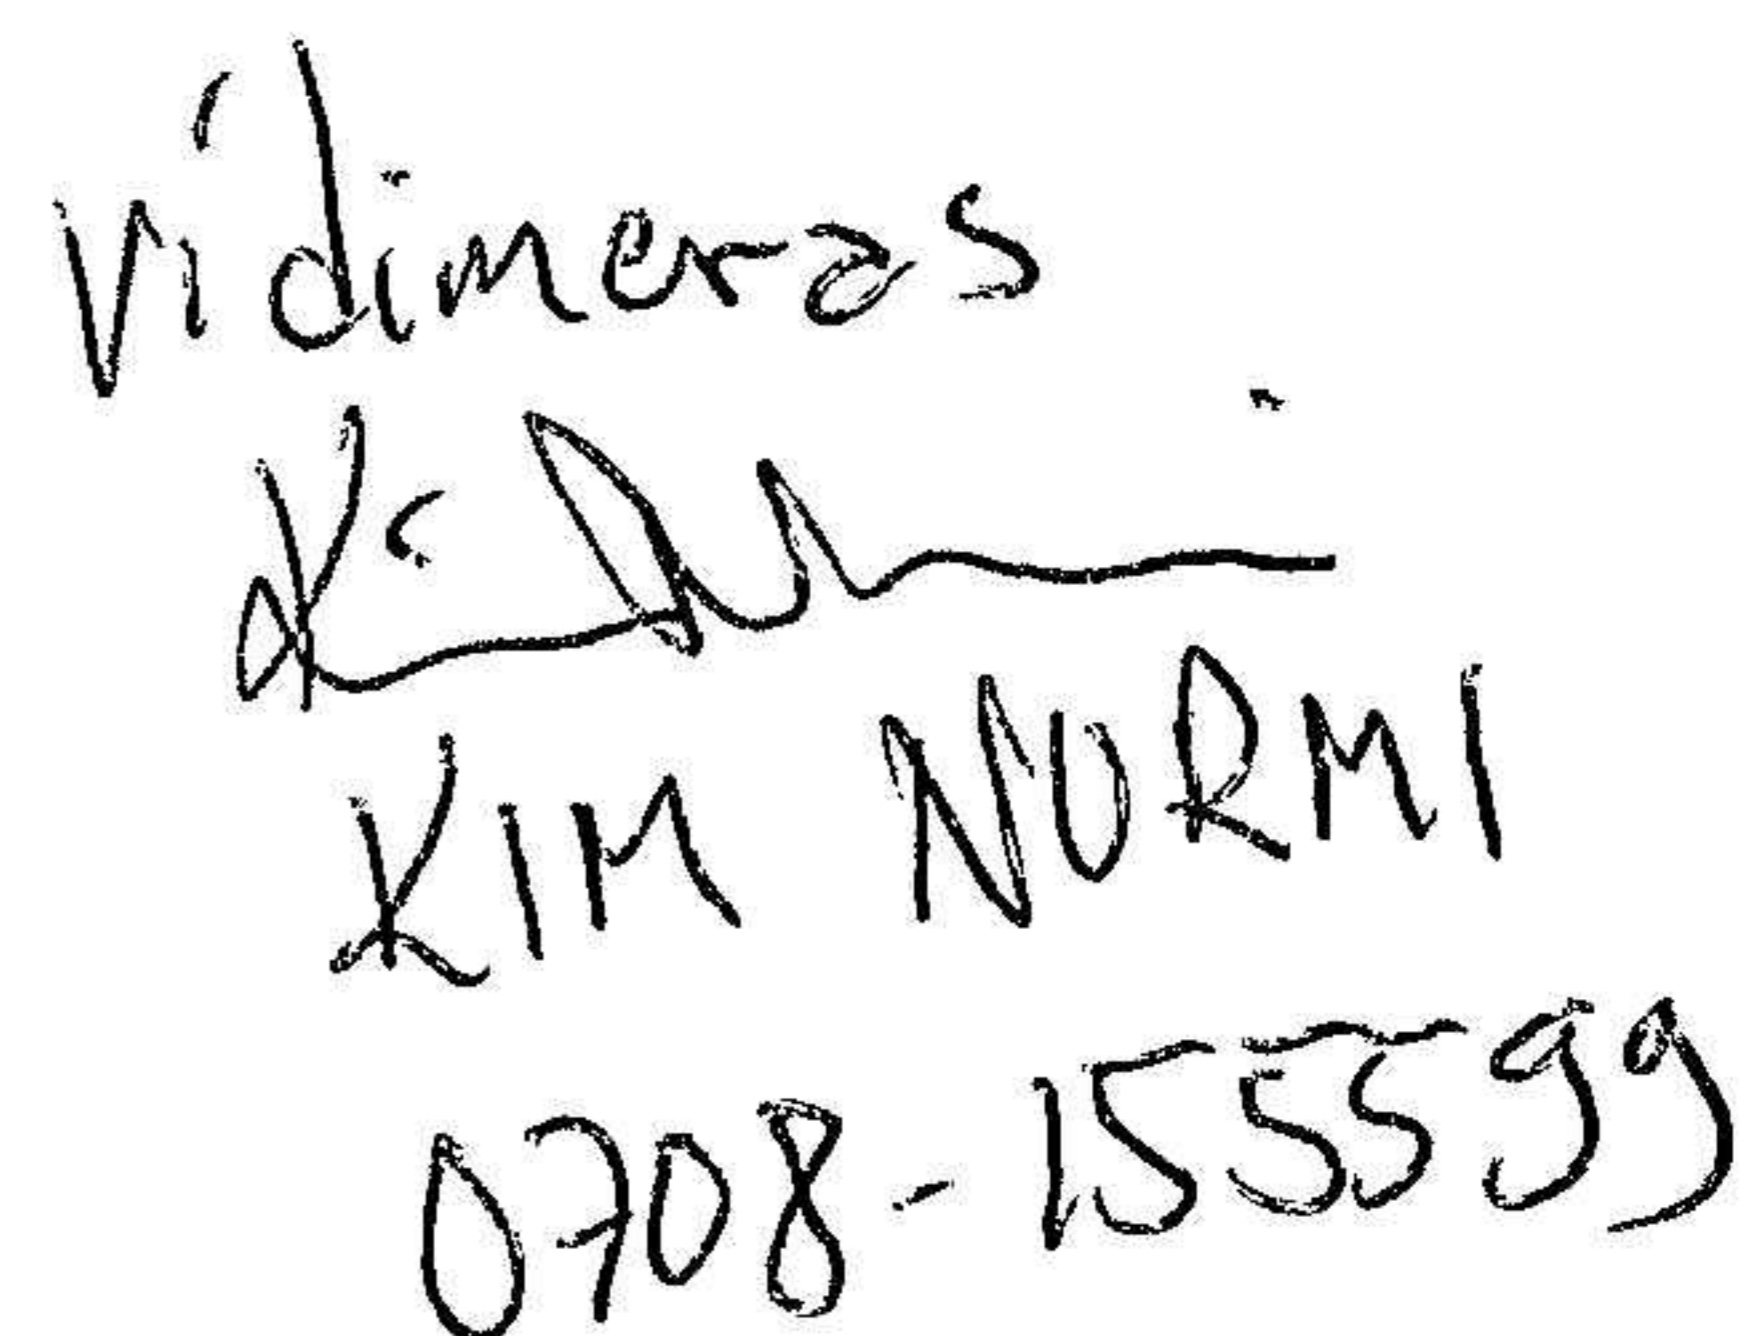 Vidimeras
KIM NURMI
0708-155599